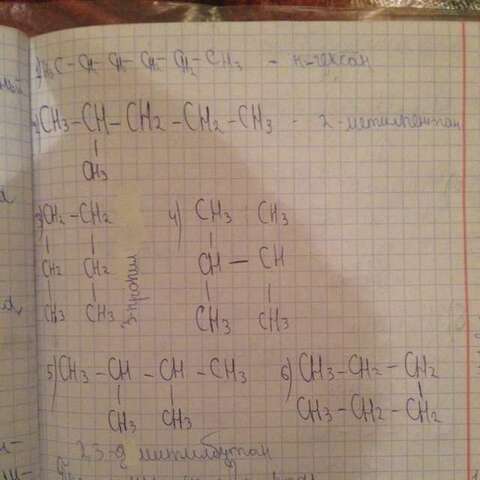 1) H3C – CH – CH – CH2 – CH2 – CH3 – н-гексан
CH3 – CH – CH2 – CH2 – CH3 – 2-метилпентан
CH3
3) CH2 – CH2
CH2 CH2
CH3 CH3
пропил
4) CH3 CH3
CH – CH
CH3 CH3
5) CH3 – CH – CH – CH3
CH3 CH3
6) CH3 – CH2 – CH2
CH3 – CH2 – CH2
2 3-д метилбутан